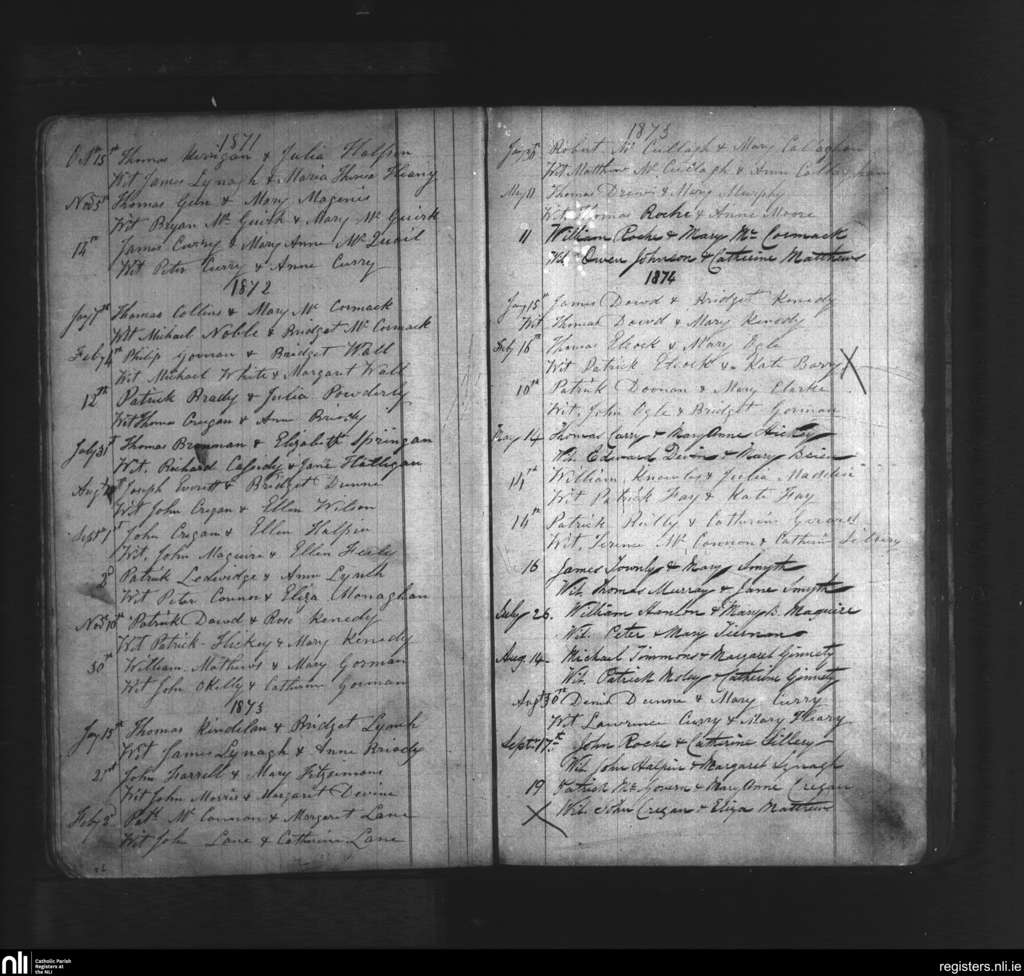 1871
Oct 15th Thomas Kerrigan & Julia Halpin
Wit James Lynagh & Maria Theresa Heary
Nov 5th Thomas Gun & Mary Magenis
Wit Bryan Mc Guirk & Mary Mc Guirk
14th James Curry & Mary Anne Mc Quail
Wit Peter Curry & Anne Curry
1872
Jany 7th Thomas Collins & Mary Mc Cormack
Wit Michael Noble & Bridget Mc Cormack
Feby 4th Philip Gorman & Bridget Wall
Wit Michael White & Margaret Wall
12th Patrick Brady & Julia Powderly
Wit Thomas Cregan & Ann Briody
July 31st Thomas Brennan & Elizabeth Springan
Wit. Richard Cassidy & Jane Halligan
Augt Joseph Everett & Bridget Dunne
Wit John Cregan & Ellen Wilson
Sept 1st John Cregan & Ellen Halpin
Wit. John Maguire & Ellen
2d Patrick Ledwidge & Anne Lynch
Wit Peter Connor & Eliza Monaghan
Nov 10th Patrick Dowd & Rose Kenedy
Wit Patrick Hickey & Mary Kenedy
30th William Mathews & Mary Gorman
Wit John OReilly & Catherine Gorman
1873
Jany 15th Thomas Kindelan & Bridget Lynch
Wit James Lynagh & Anne Briody
21st John Farrell & Mary Fitzsimons
Wit John Morris & Margaret Devine
Feby 2d Patk Mc Cannon & Margaret Lane
Wit John Lane & Catherine Lane
1873
Robert Mc Cullagh & Mary Calaghan
Wit Matthew Mc Cullagh & Ann Callaghan
May 11 Thomas Drewi & Mary Murphy
Wit Thomas Roche & Anne Moore
11 William Roche & Mary Mc Cormack
Wit Owen Johnson & Catherine Matthews
1874
Jany 15th James Dowd & Bridget Kenedy
Wit Thomas Dowd & Mary Kenedy
Feby 16th Thomas Elcock & Mary Ogle
Wit Patrick Elcock & Kate Barry
10th Patrick Doonan & Mary Clarke
Wit. John Ogle & Bridget Gorman
May 14 Thomas Carry & Mary Anne Hickey
Wit. Edward Devin & Mary Brien
14th William Knowles & Julia Madden
Wit Patrick Fay & Kate Fay
14th Patrick Reilly & Catherine Gerard
Wit. Terence Mc Cannon & Catherine Tillery
16 James Townly & Mary Smyth
Wit. Thomas Murray & Jane Smyth
July 26. William Hanlon & Mary B. Maguire
Wit. Peter & Mary Tiernan
Aug. 14 Michael Timmons & Margaret Ginnety
Wit. Patrick Moley & Catherine Ginnety
Augt 30th Denis Dunne & Mary Curry
Wit Lawrence Curry & Mary Heary
Sept. 17th John Roche & Catherine Tillery
Wit. John Halpin & Margaret Lynagh
19 Patrick Mc Govern & Mary Anne Cregan
Wit. John Cregan & Eliza Matthews
nli Catholic Parish
Registers at
the NLI
registers.nli.ie